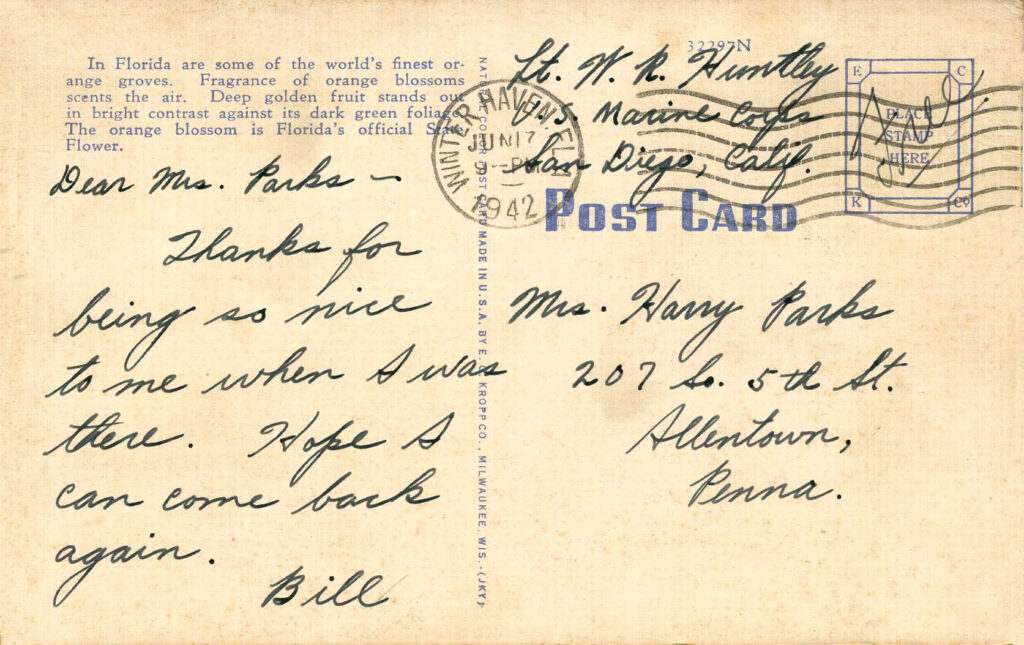 In Florida are some of the world's finest or-
ange groves. Fragrance of orange blossoms
scents the air. Deep golden fruit stands out
in bright contrast against its dark green foliage.
The orange blossom is Florida's official State
Flower.
Dear Mrs. Parks –
Thanks for
being so nice
to me when I was
there. Hope I
can come back
again.
Bill
NATURAL COLOR POST CARD MADE IN U.S.A. BY E. C. KROPP CO., MILWAUKEE, WIS.-(JKY)
32297N
Lt. W. R. Huntley
U.S. Marine Corps
San Diego, Calif.
WINTER HAVEN, FLA.
JUN 17
9 - PM
1942
Free
E C
PLACE
STAMP
HERE
K Co
POST CARD
Mrs. Harry Parks
207 So. 5th St.
Allentown,
Penna.